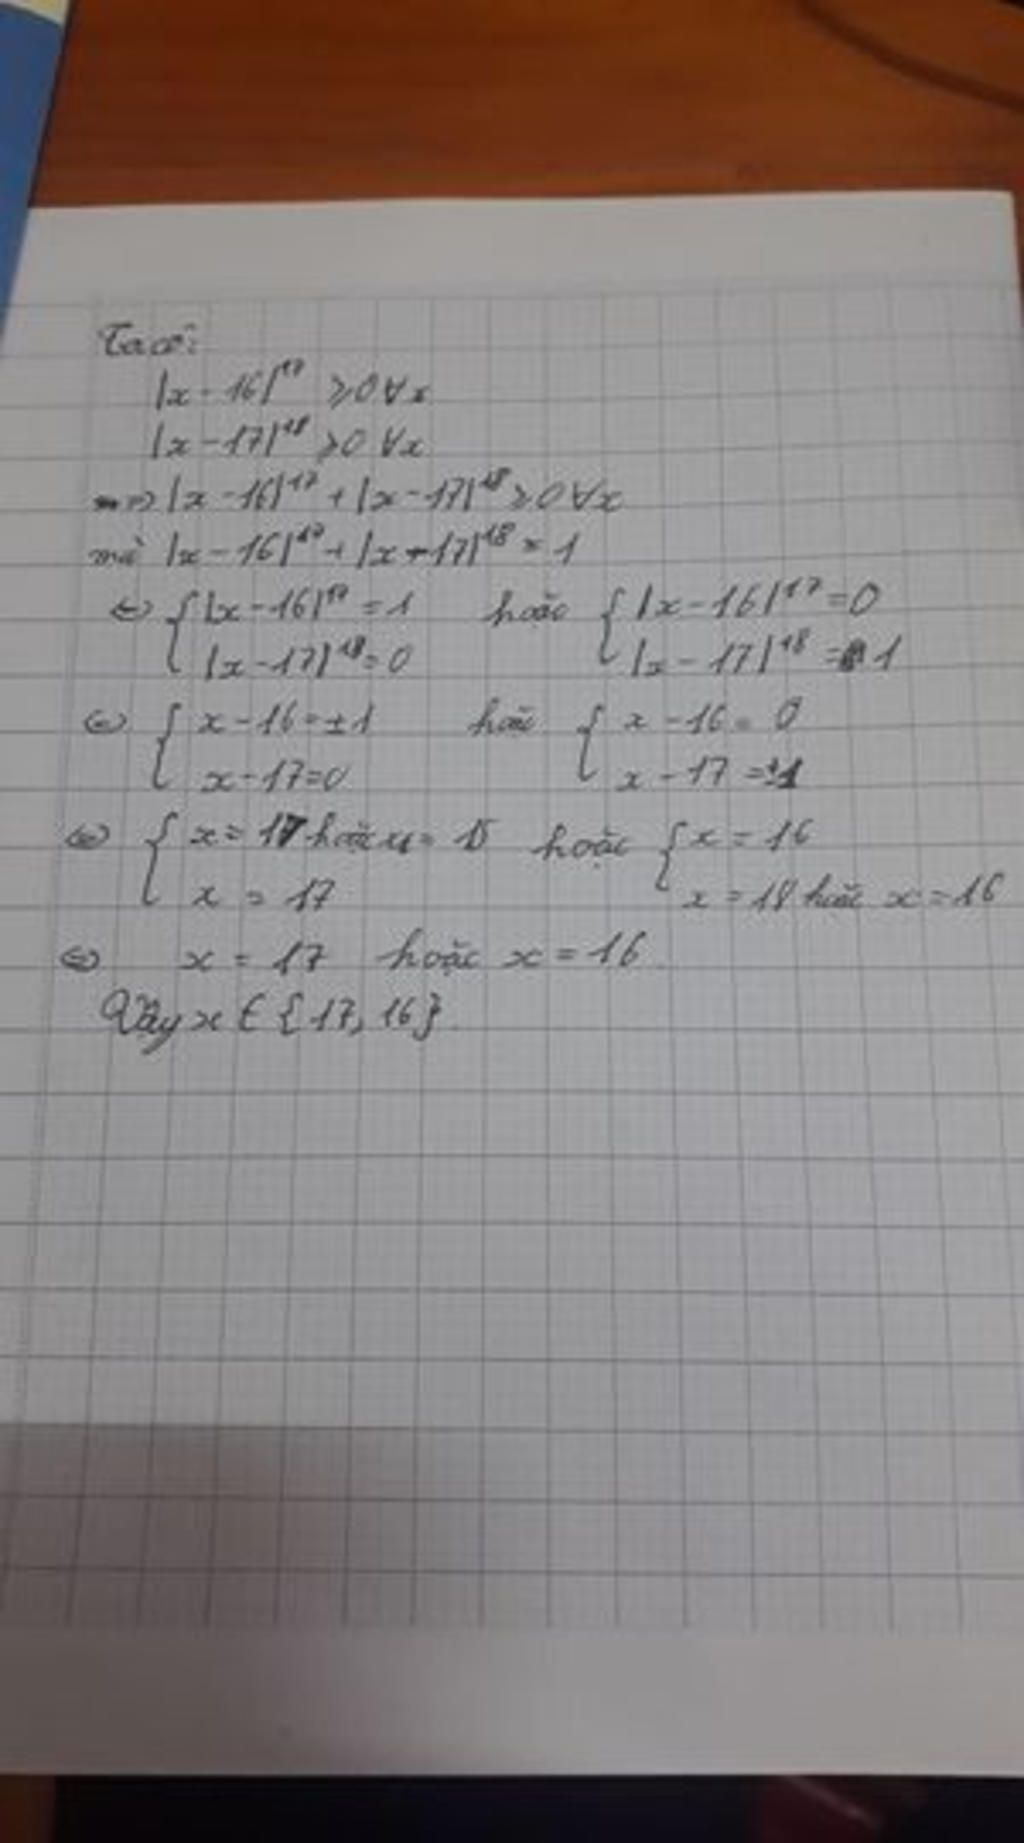 Ta có:
|x - 16|¹⁷ ≥ 0 ∀x
|x - 17|¹⁸ ≥ 0 ∀x
=> |x - 16|¹⁷ + |x - 17|¹⁸ ≥ 0 ∀x
mà |x - 16|¹⁷ + |x - 17|¹⁸ = 1
<=> { |x - 16|¹⁷ = 1 hoặc { |x - 16|¹⁷ = 0
|x - 17|¹⁸ = 0 |x - 17|¹⁸ = 1
<=> { x - 16 = ±1 hoặc { x - 16 = 0
x - 17 = 0 x - 17 = ±1
<=> { x = 17 hoặc x = 15 hoặc { x = 16
x = 17 x = 18 hoặc x = 16
<=> x = 17 hoặc x = 16
Vậy x ∈ {17, 16}